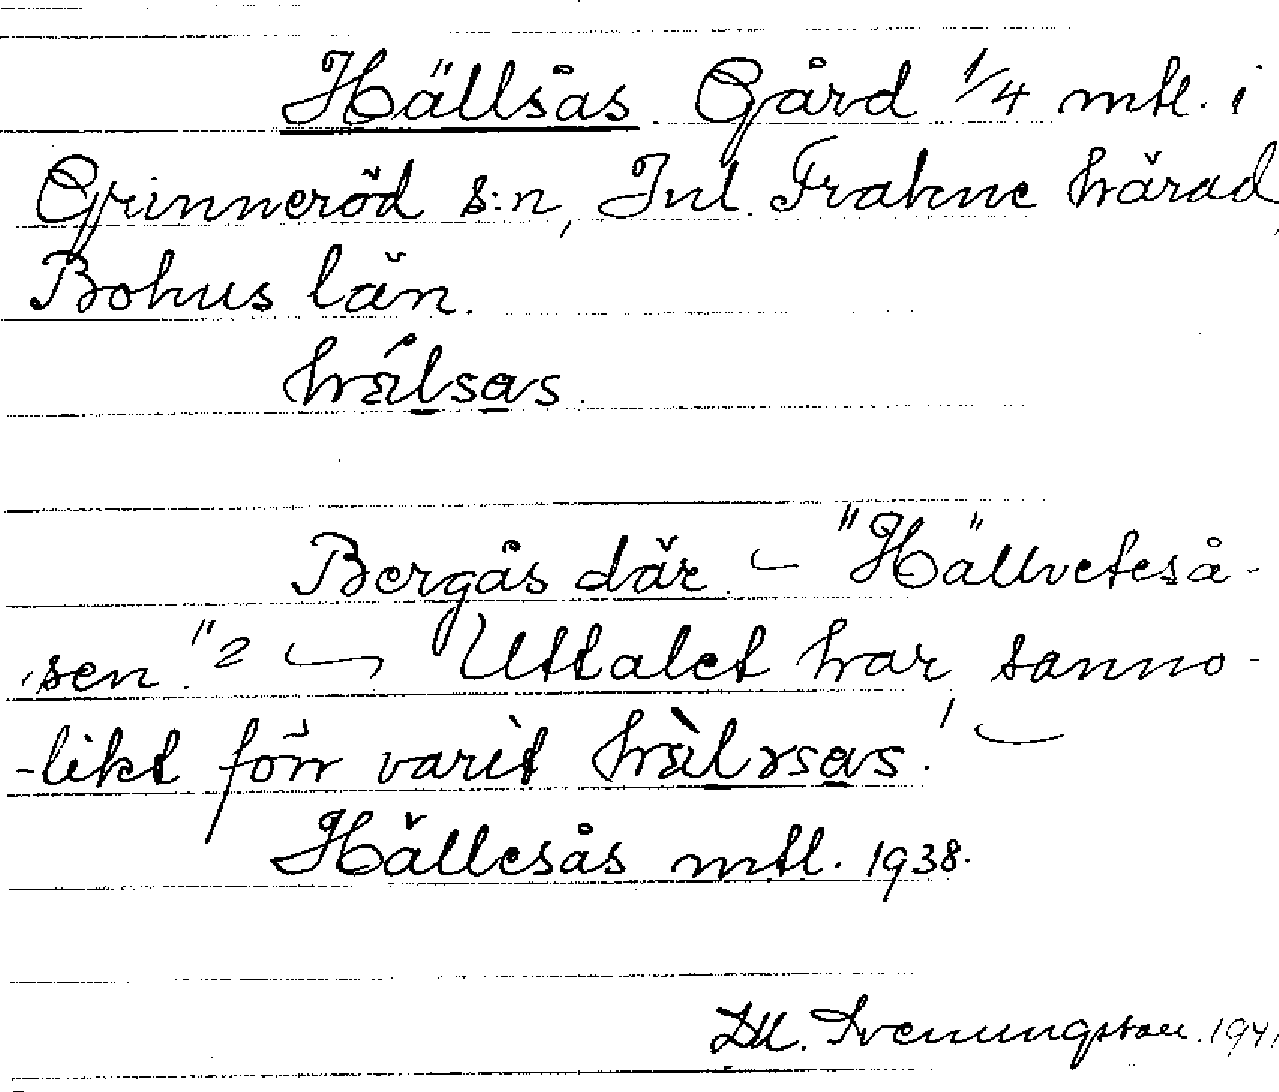 Hällsås. Gård 1/4 mtl. i
Grinneröd s:n, Inl. Fräkne härad,
Bohus län.
hälsas.
Bergås där. — "Hällveteså-
sen." — Uttalet har sanno-
-likt förr varit hälrsas.
Hällesås mtl. 1938.
M. Svenungsson. 1941